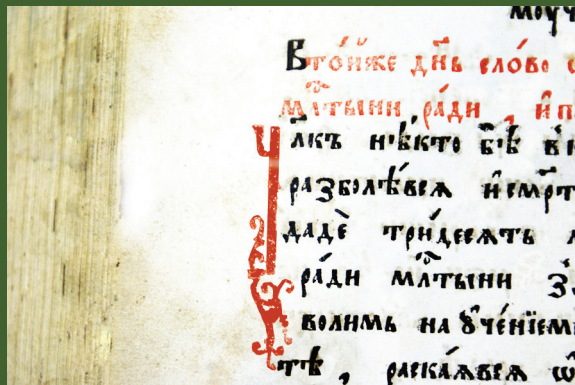 моуч
В то́йже дн҃ь сло́во
мл҃тыни ра́ди , и҆ п
Ч л҃къ нѣ́кто бѣ̀ в
разболѣ́вся и҆ смр҃т
дадѐ три́десять
ра́ди мл҃тыни
волимь на ᲂу҆че́нїем
тѣ раска́явся ѿ